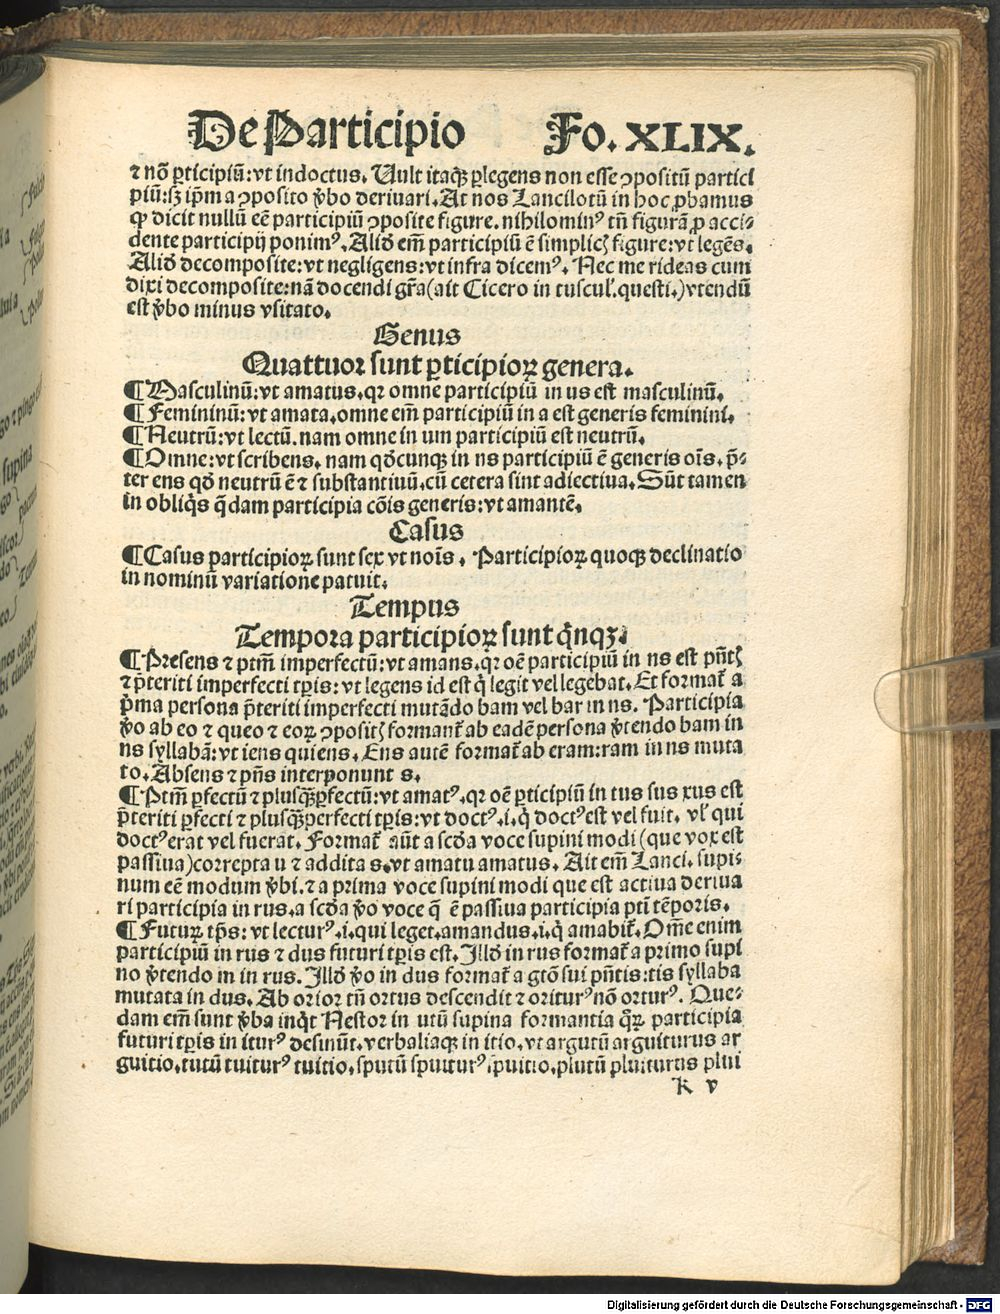 De Participio Fo. XLIX.
⁊ nō ꝑticipiū: vt indoctus. Uult itaqꝫ ꝑlegens non esse ꝯpositū partici
piū: sꝫ ip̄m a ꝯposito v̄bo deriuari. At nos Lancilotū in hoc ꝓbamus
ꝙ dicit nullū eē participiū ꝯposite figure. nihilominꝰ tn̄ figurā ꝓ acci⸗
dente participij ponimꝰ. Aliđ em̄ participiū ē simplicꝭ figure: vt legēs.
Aliđ decomposite: vt negligens: vt infra dicemꝰ. Nec me rideas cum
dixi decomposite: nā docendi gr̄a (ait Cicero in tuscul̄. questi.) vtendū
est v̄bo minus vsitato.
Genus
Quattuor sunt ꝑticipioꝝ genera.
¶ Masculinū: vt amatus. qr omne participiū in us est masculinū.
¶ Femininū: vt amata. omne em̄ participiū in a est generis feminini.
¶ Neutrū: vt lectū. nam omne in um participiū est neutrū.
¶ Omne: vt scribens. nam qđcunqꝫ in ns participiū ē generis oīs. p̄⸗
ter ens qđ neutrū ē ⁊ substantiuū. cū cetera sint adiectiua. Sūt tamen
in obliq̄s q̄dam participia cōis generis: vt amantē.
Casus
¶ Casus participioꝝ sunt sex vt noīs. Participioꝝ quoqꝫ declinatio
in nominū variatione patuit.
Tempus
Tempora participioꝝ sunt q̄nqꝫ.
¶ Presens ⁊ ptm̄ imperfectū: vt amans. qr oē participiū in ns est pn̄tꝭ
⁊ p̄teriti imperfecti tp̄is: vt legens id est q̄ legit vel legebat. Et format̄ a
p̄ma persona p̄teriti imperfecti mutādo bam vel bar in ns. Participia
v̄o ab eo ⁊ queo ⁊ eoꝝ ꝯpositꝭ formant̄ ab eadē persona v̄tendo bam in
ns syllabā: vt iens quiens. Ens autē format̄ ab eram: ram in ns muta
to. Absens ⁊ pn̄s interponunt s.
¶ Ptm̄ ꝑfectū ⁊ plusqꝫꝑfectū: vt amatꝰ. qr oē ꝑticipiū in tus sus xus est
p̄teriti ꝑfecti ⁊ plusqꝫꝑfecti tp̄is: vt doctꝰ. i. q̄ doctꝰ est vel fuit. vl̄ qui
doctꝰ erat vel fuerat. Format̄ aūt a scđa voce supini modi (que vox est
passiua) correpta u ⁊ addita s. vt amatu amatus. Ait em̄ Lanci. supi⸗
num eē modum v̄bi. ⁊ a prima voce supini modi que est actiua deriua
ri participia in rus. a scđa v̄o voce q̄ ē passiua participia pti tēporis.
¶ Futuꝝ tp̄s: vt lecturꝰ. i. qui leget. amandus. i. q̄ amabit̄. Om̄e enim
participiū in rus ⁊ dus futuri tp̄is est. Illđ in rus format̄ a primo supi
no v̄tendo m in rus. Illđ v̄o in dus format̄ a gtō sui pn̄tis: tis syllaba
mutata in dus. Ab orior tn̄ ortus descendit ⁊ oriturꝰ nō orturꝰ. Que⸗
dam em̄ sunt v̄ba inq̄t Nestor in utū supina formantia q̄ꝝ participia
futuri tp̄is in iturꝰ desinūt. verbaliaqꝫ in itio. vt argutū arguiturus ar
guitio. tutū tuiturꝰ tuitio. sputū spuiturꝰ spuitio. plutū pluiturus plui
k v
Digitalisierung gefördert durch die Deutsche Forschungsgemeinschaft - DFG